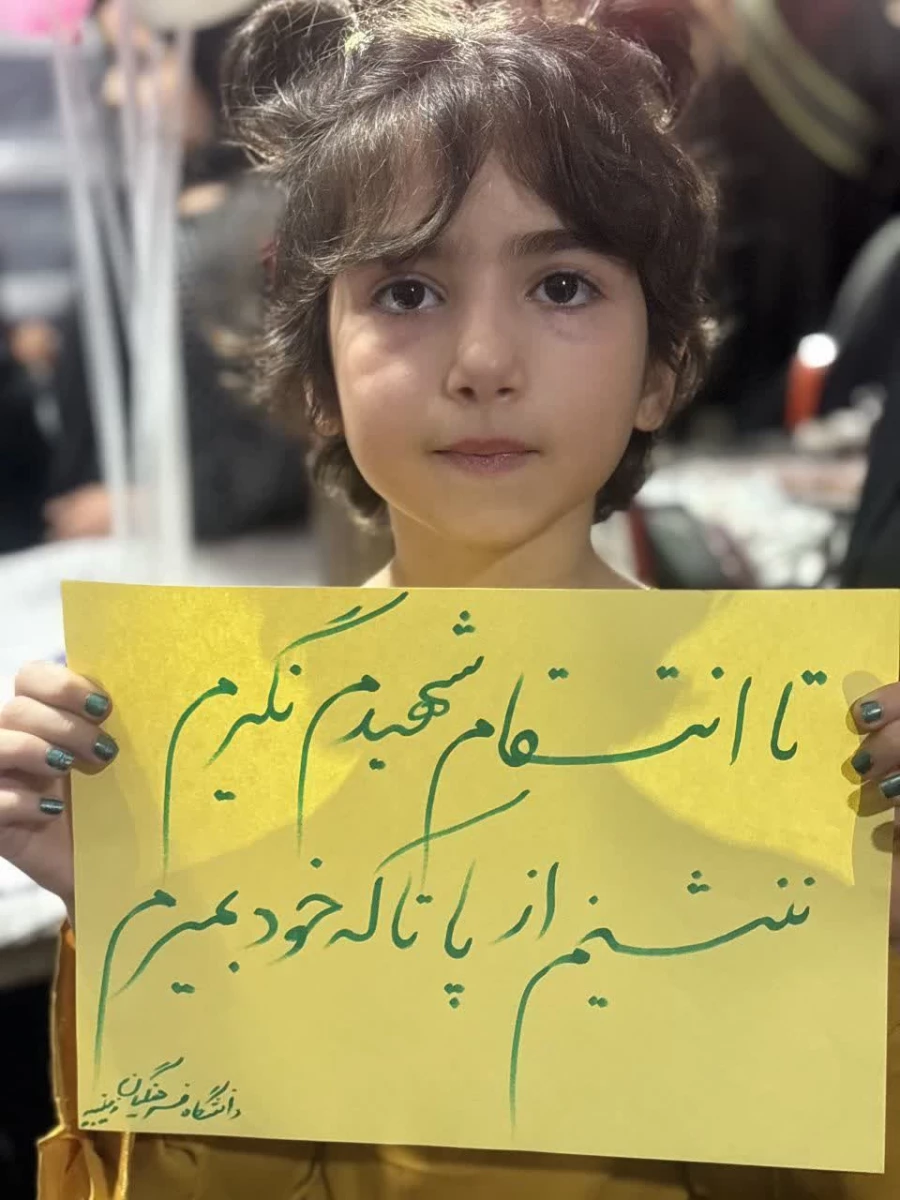 تا انتقام شهیدم نگیرم
ننشینم از پا تا که خود بمیرم
دانشگاه فرهنگیان زینبیه